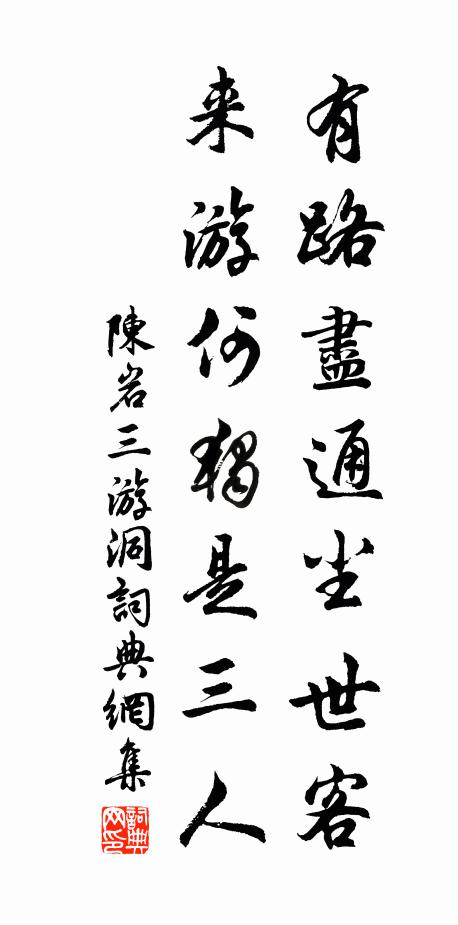 有路盡通尘世客
来游何獨是三人
陳岩三游洞詞典網集
詞典網印